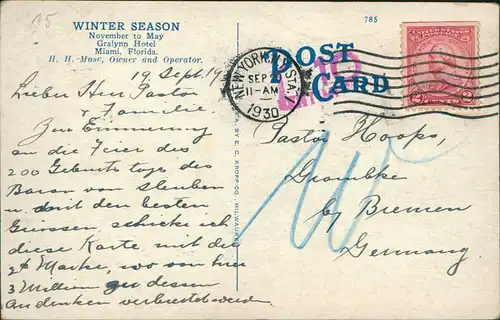 WINTER SEASON
November to May
Gralynn Hotel
Miami, Florida.
H. H. Mase, Owner and Operator.
785
POST
CARD
NEW YORK, N.Y. STA.
SEP
11-AM
1930
19. Sept. 19
Lieber Herr Pastor
& Familie.
Zur Erinnerung
an die Feier des
200 Geburtstages des
Baron von Steuben
u. mit den besten
Grüssen, schicke ich
diese Karte mit der
2¢ Marke, wo von hier
3 Million zu dessen
Andenken verbreitet werden.
BY E. C. KROPP CO., MILWAUKEE
Pastor Hoops,
Grambke
by Bremen
Germany